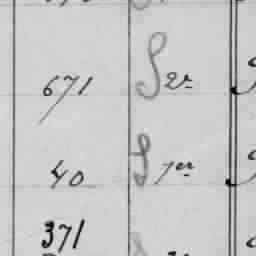 671 S 2r
40 S 7er
371